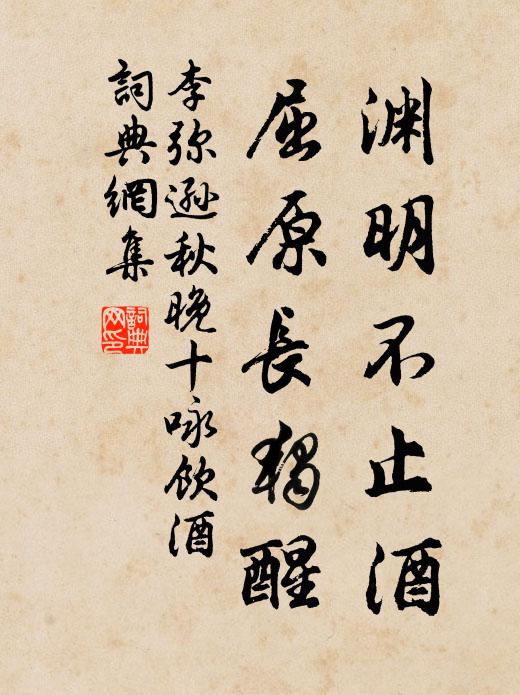 渊明不止酒
屈原長獨醒
李弥遜秋晚十咏飲酒
詞典網集
詞典
网印